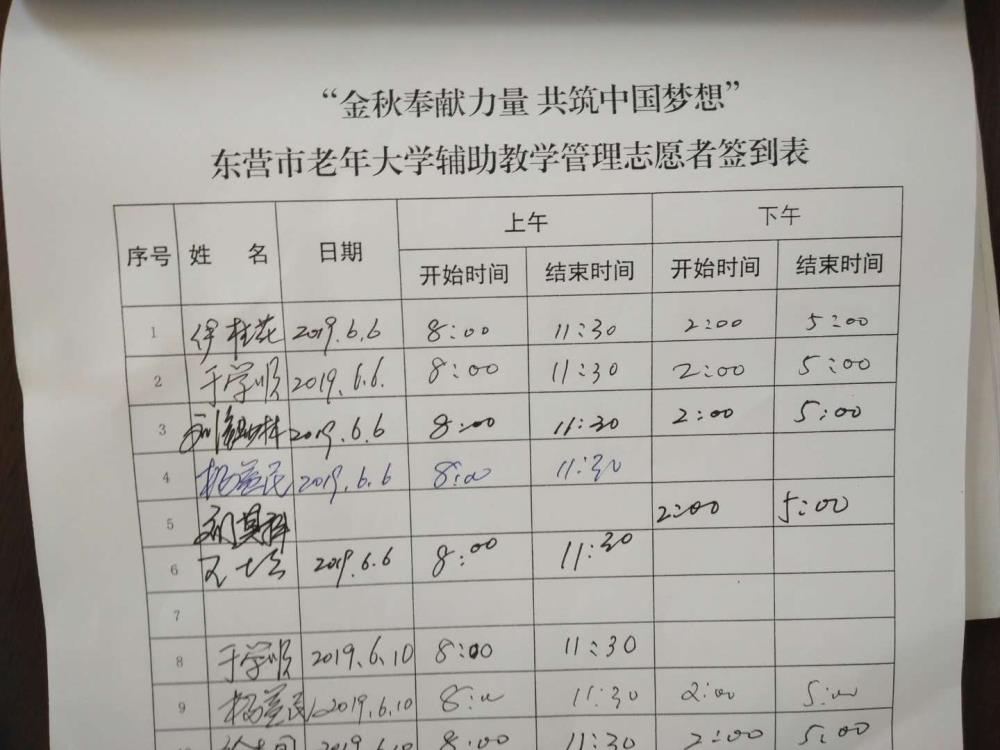 “金秋奉献力量 共筑中国梦想”
东营市老年大学辅助教学管理志愿者签到表
序号 姓 名 日期 上午 下午
开始时间 结束时间 开始时间 结束时间
1 伊桂花 2019.6.6 8:00 11:30 2:00 5:00
2 于学顺 2019.6.6. 8:00 11:30 2:00 5:00
3 2019.6.6 8:00 11:30 2:00 5:00
4 杨益民 2019.6.6 8:00 11:30
5 2:00 5:00
6 2019.6.6 8:00 11:30
7
8 于学顺 2019.6.10 8:00 11:30
9 杨益民 2019.6.10 8:00 11:30 2:00 5:00
2019.6.10 8:00 11:30 2:00 5:00